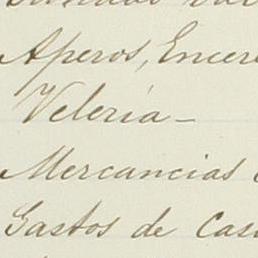 Aperos, Encer
Veleria —
Mercancias
Gastos de Cas